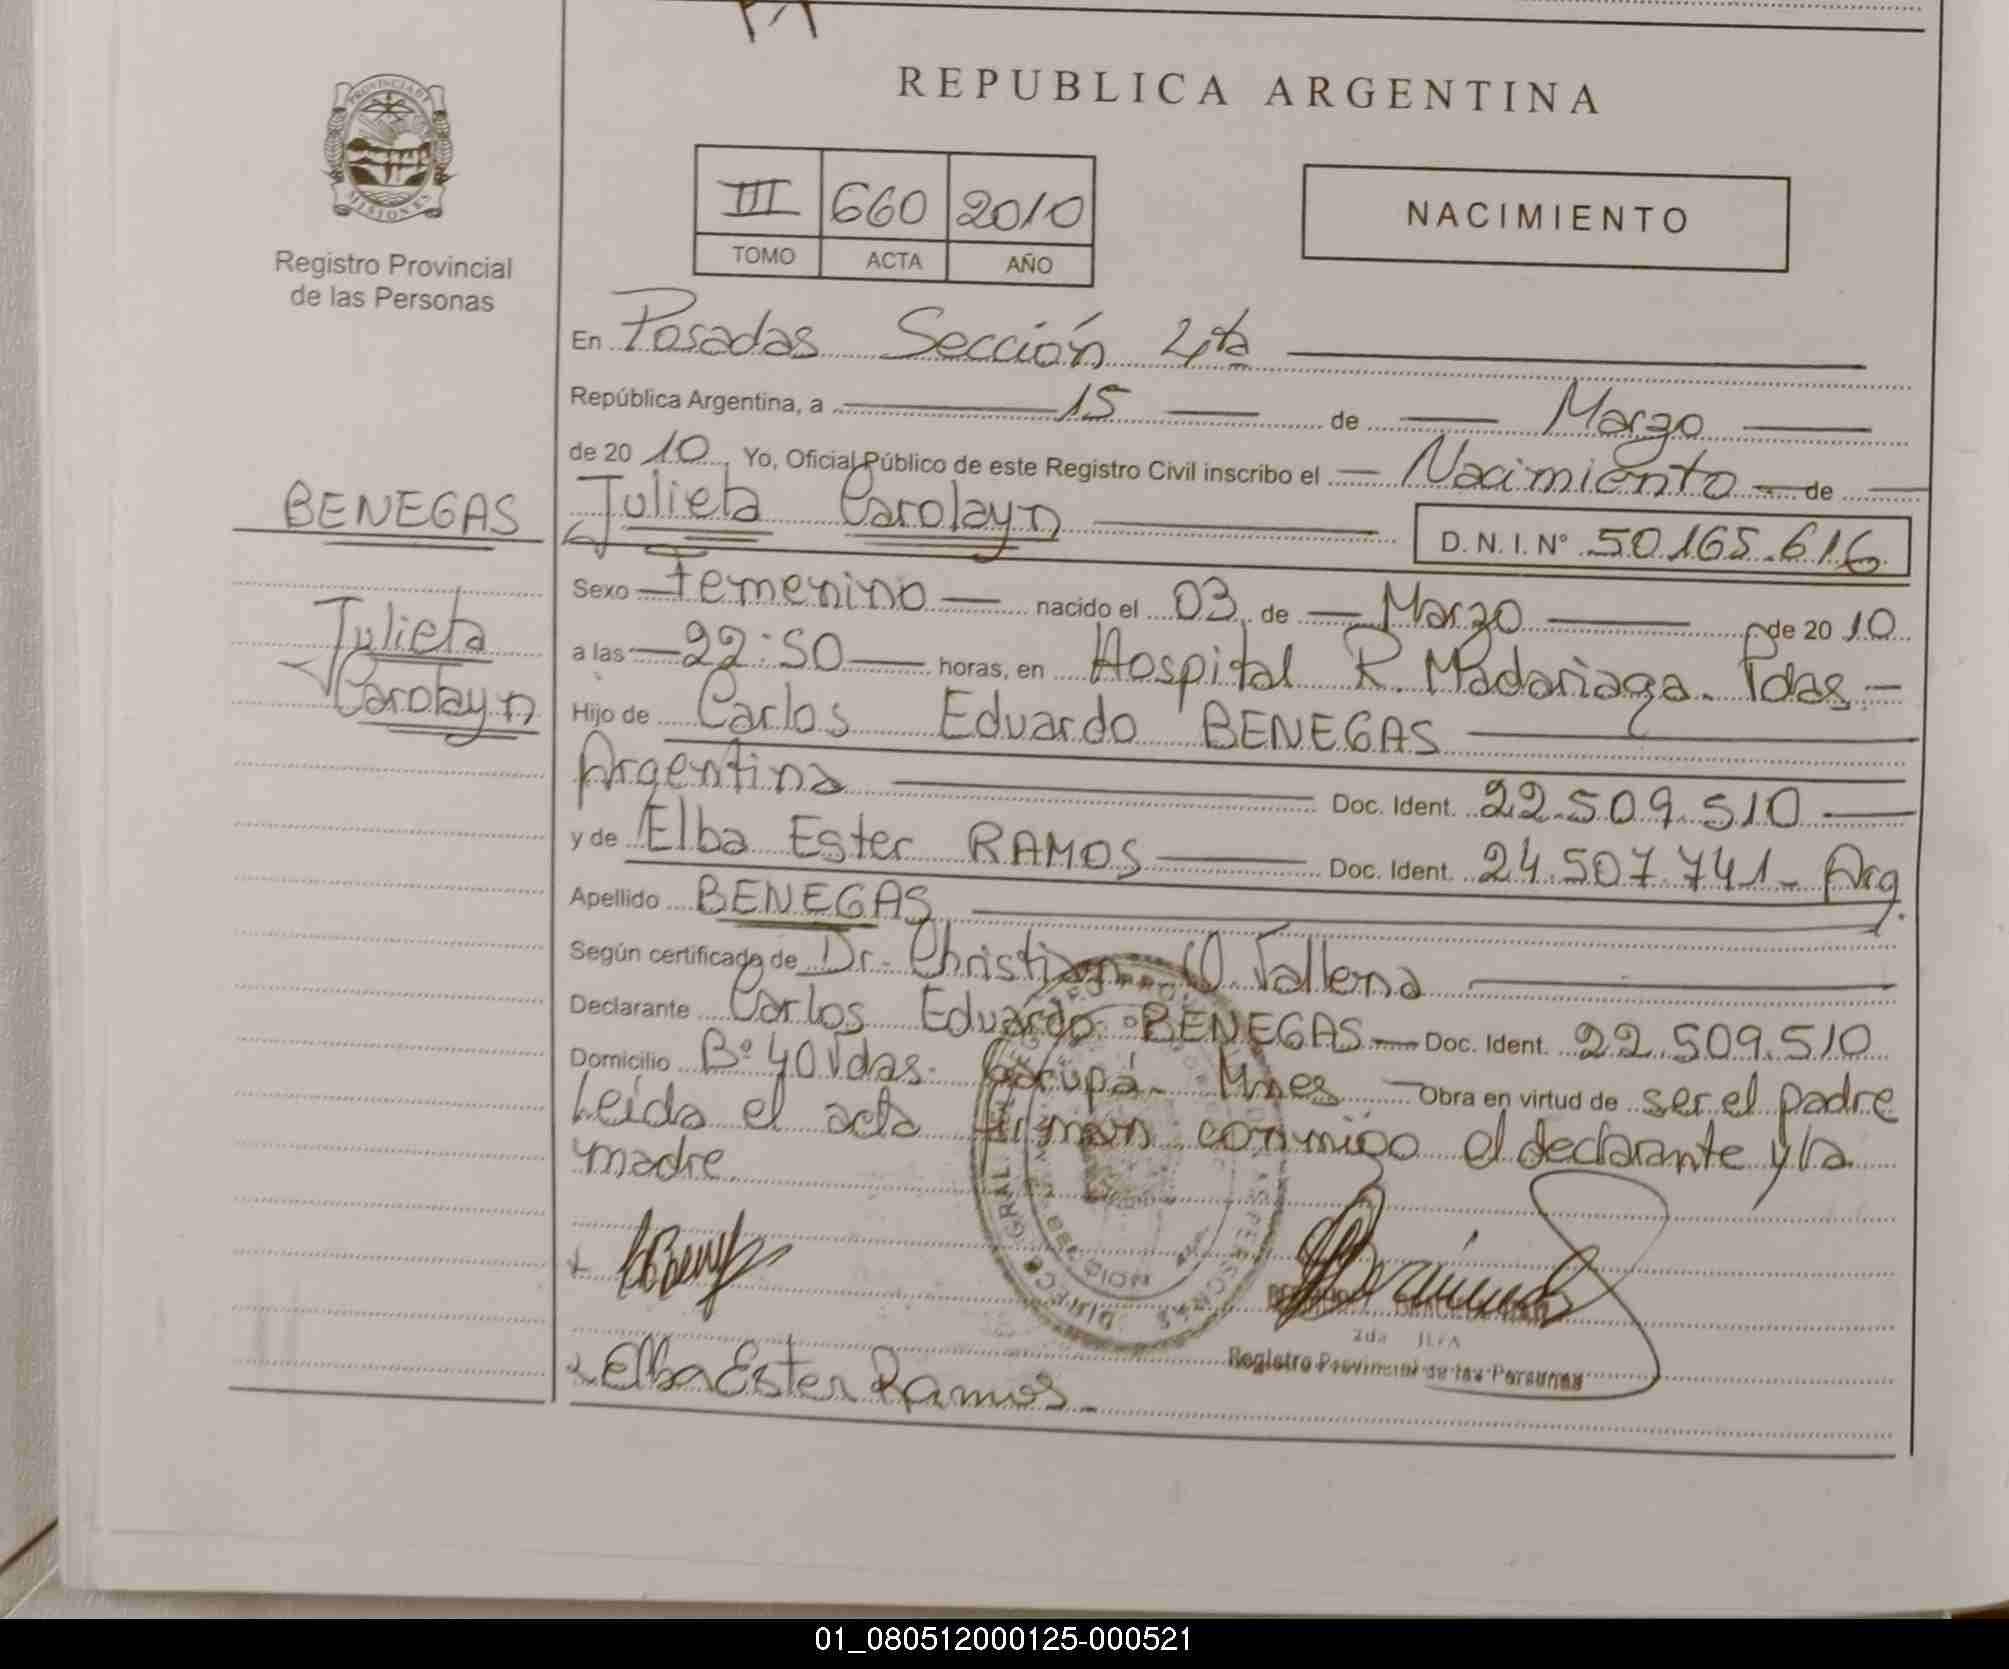 REPUBLICA ARGENTINA
PROVINCIA DE
MISIONES
Registro Provincial
de las Personas
III 660 2010
TOMO ACTA AÑO
NACIMIENTO
En Posadas Sección 4ta
República Argentina, a 15 de Marzo
de 2010, Yo, Oficial Público de este Registro Civil inscribo el Nacimiento de
BENEGAS
Julieta Carolayn
D. N. I. Nº 50.165.616
Julieta
Carolayn
Sexo Femenino nacido el 03 de Marzo de 2010
a las 22:50 horas, en Hospital R. Madariaga. Pdas.
Hijo de Carlos Eduardo BENEGAS
Argentina Doc. Ident. 22.509.510
y de Elba Ester RAMOS Doc. Ident. 24.507.741 Arg.
Apellido BENEGAS
Según certificado de Dr. Christian
Declarante Carlos Eduardo BENEGAS Doc. Ident. 22.509.510
Domicilio Bº 40 Vdas. Garupá. Mnes Obra en virtud de ser el padre
Leída el acta firman conmigo el declarante y la
madre
Elba Ester Ramos
Registro Provincial de las Personas
01_080512000125-000521